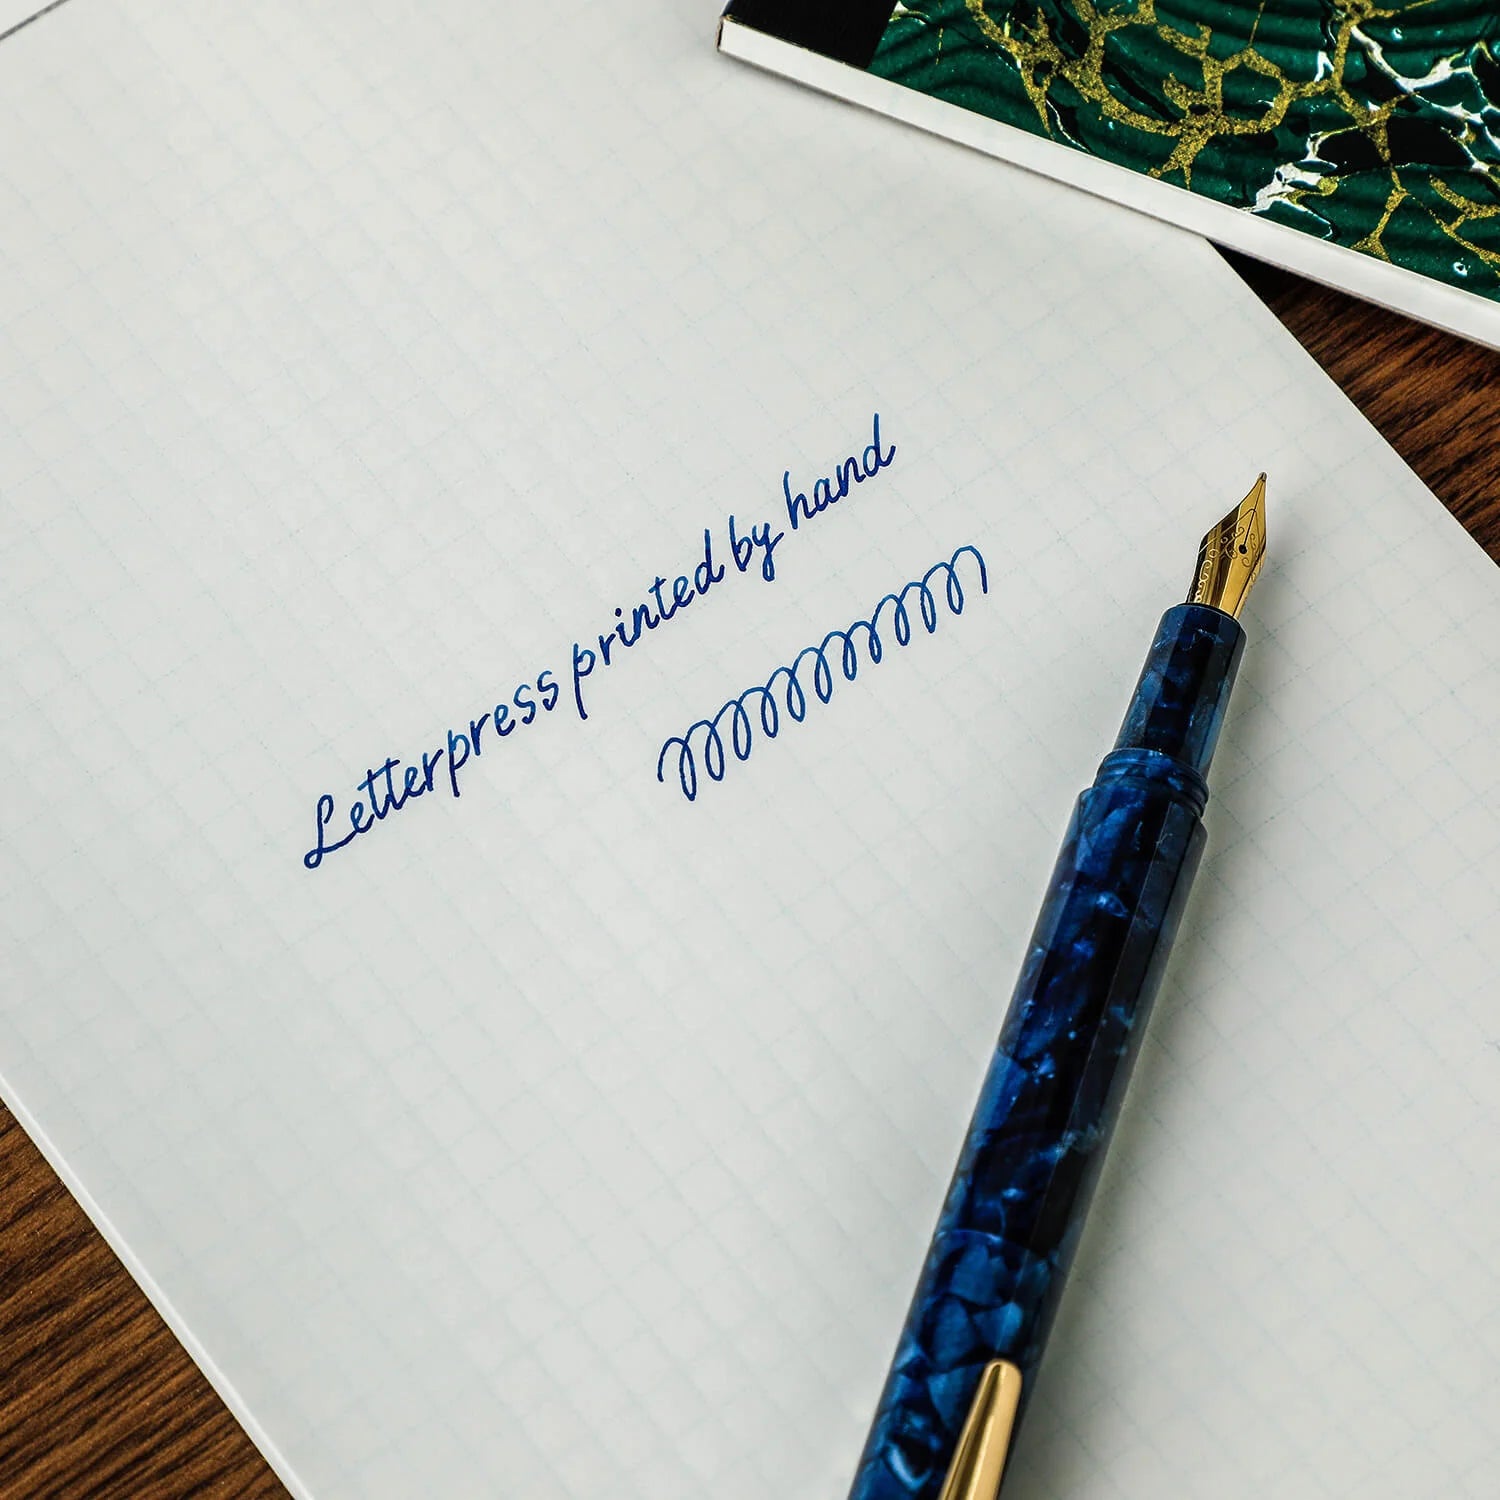 Letterpress printed by hand